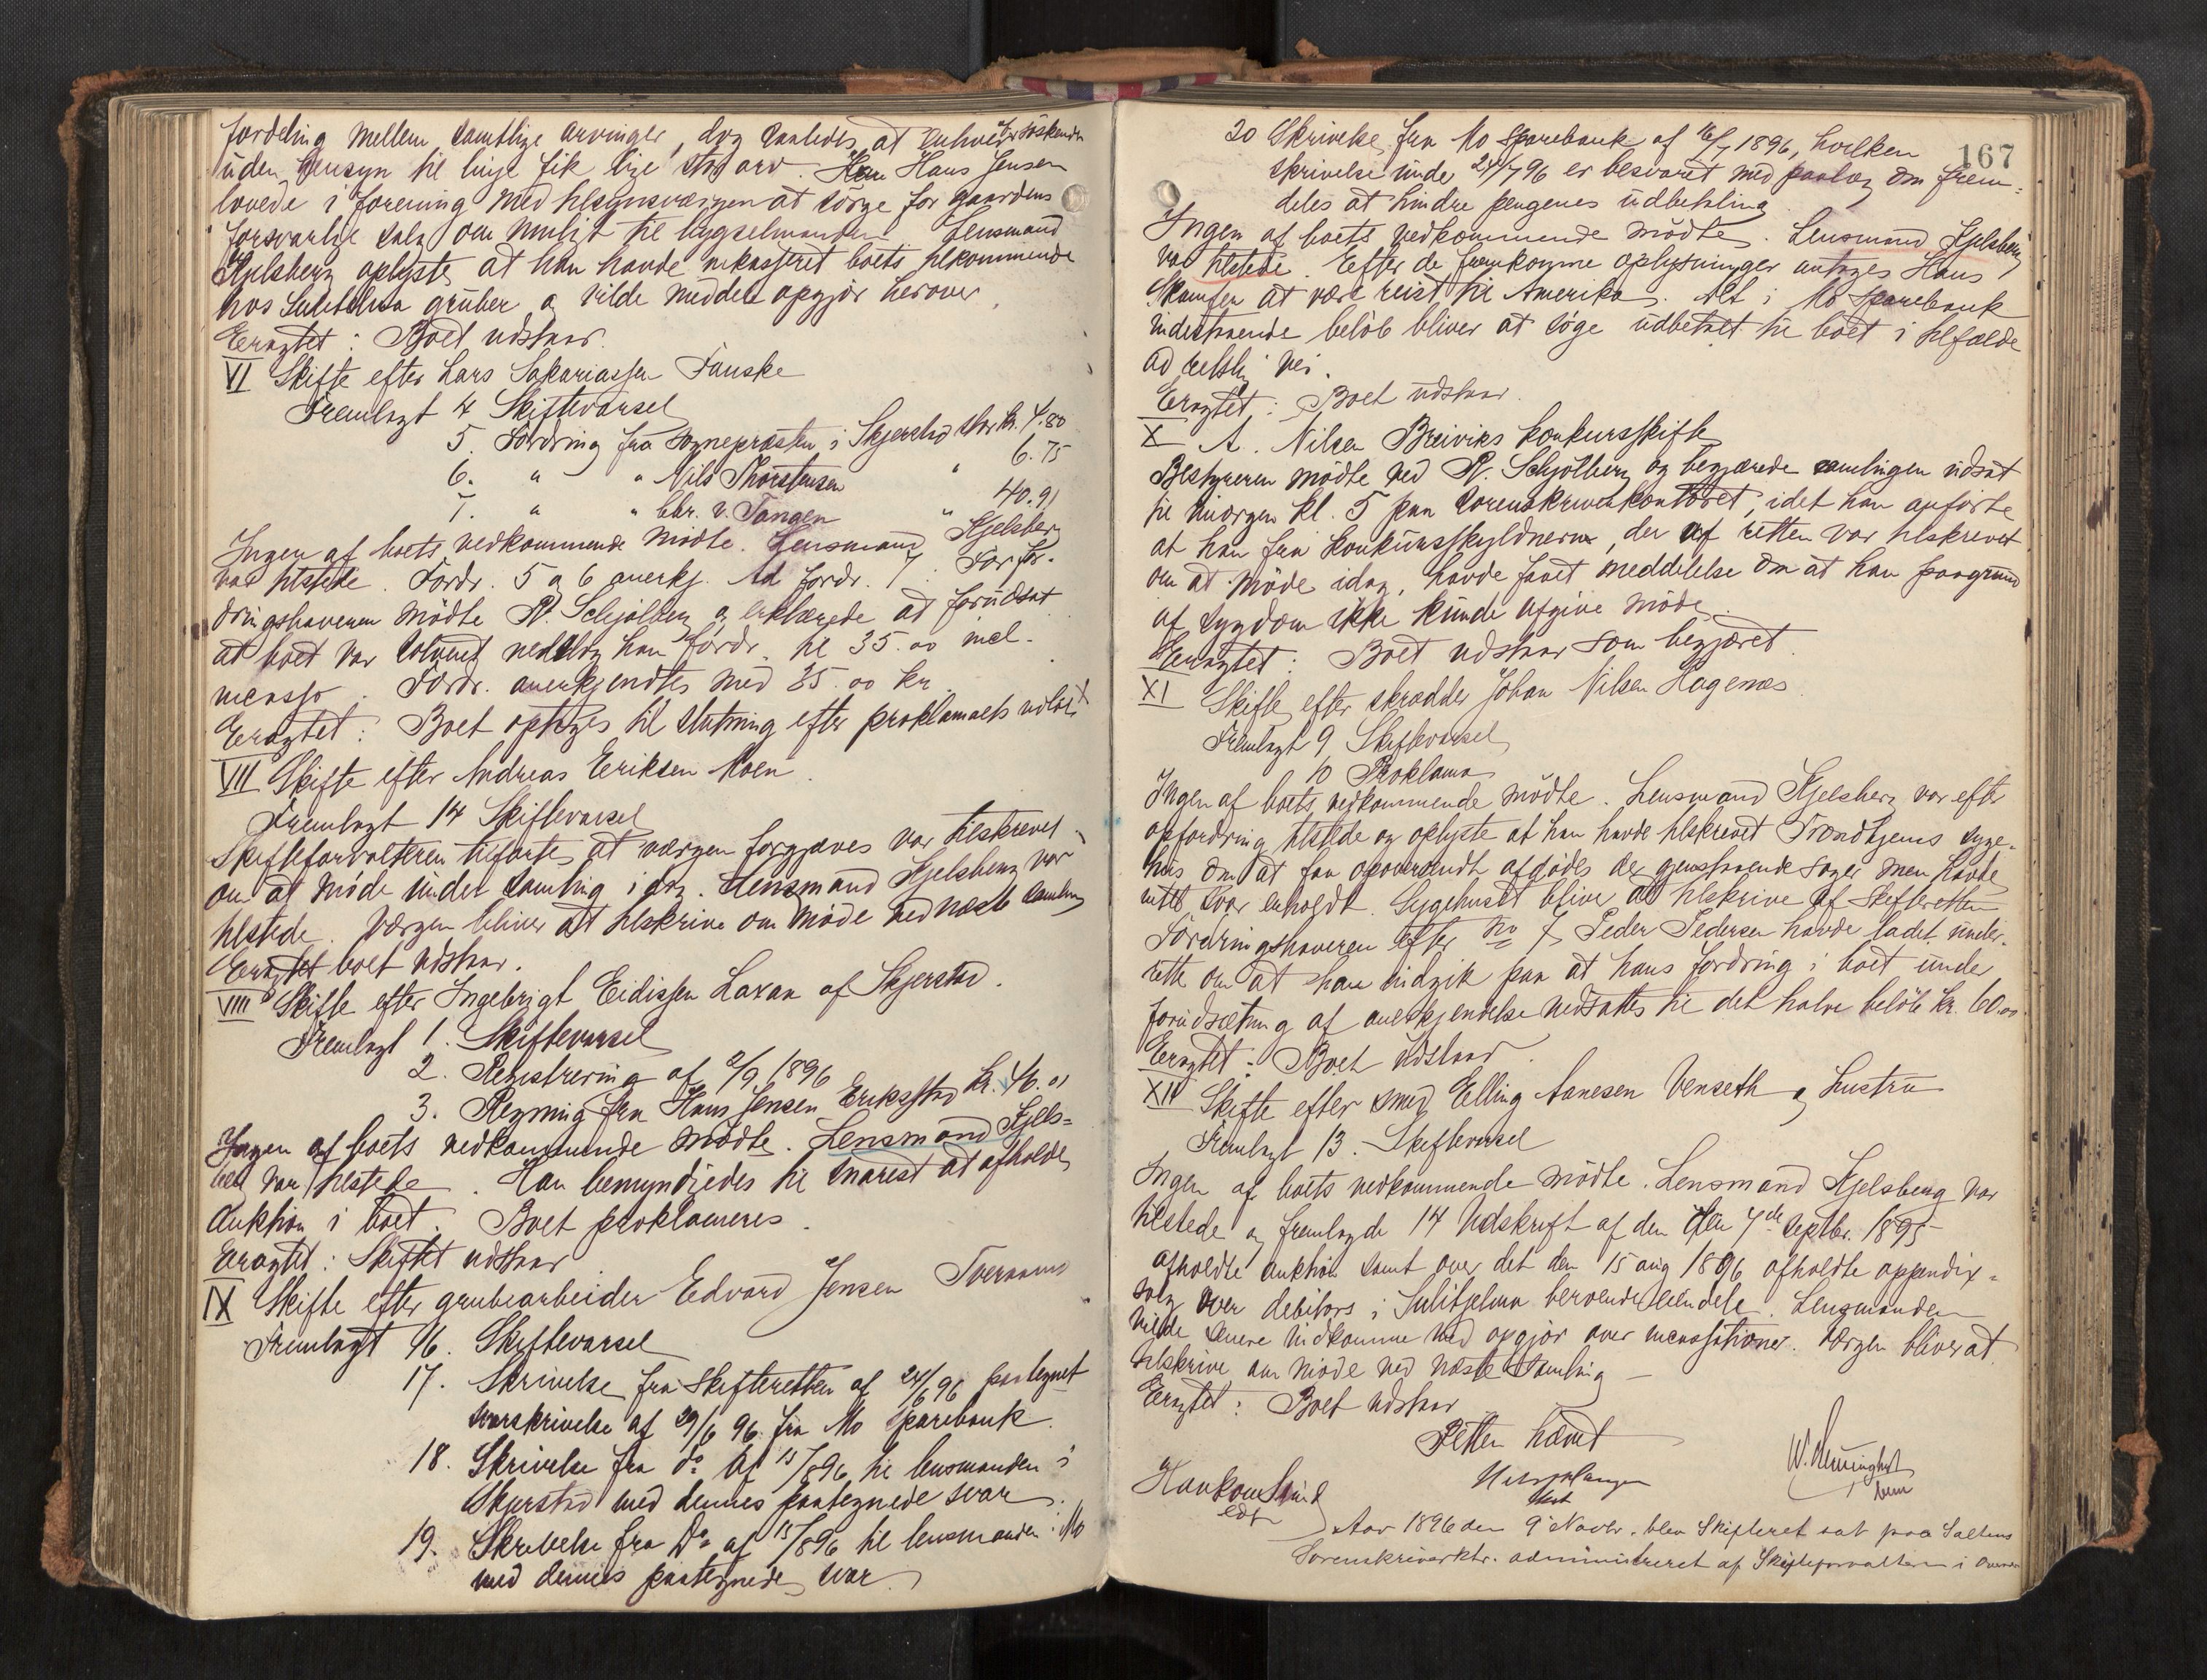 fordeling mellem samtlige arvinger, dog saaledes at enhver af søskende
uden hensyn til linje fik lige stor arv. Hans Jensen
lovede i forening med tilsynsværgen at sørge for gaardens
forsvarlige salg om muligt til bygselmanden. Lensmand
Kjelsberg oplyste at han havde inkasseret boets tilkommende
hos Sulitelma gruber og vilde meddele opgjør herover.
Eragtet: Boet udstaar.
VI Skifte efter Lars Sakariassen Fauske
Fremlagt 4 Skiftevarsel
5. Fordring fra sognepræsten i Skjerstad stor kr. 4.80
6. " " Nils Thorstensen " 6.75
7. " " hr. v. Tangen " 40.91
Ingen af boets vedkommende mødte. Lensmand Kjelsberg
var tilstede. Fordr. 5 og 6 anerkj. Ad fordr. 7. For for-
dringshaveren mødte R. Schjølberg og erklærede at forudsat
at boet var solvent nedslog han fordr. til 35.00 incl.
incasso. Fordr. anerkjendtes med 35.00 kr
Eragtet: Boet optages til slutning efter proklamaets udløb
VII Skifte efter Andreas Eriksen Moen.
Fremlagt 14 Skiftevarsel
Skifteforvalteren tilførte, at værgen forgjæves var tilskrevet
om at møde under samling idag. Lensmand Kjelsberg var
tilstede. Værgen bliver at tilskrive om møde ved næste samling
Eragtet boet udstaar.
VIII Skifte efter Ingebrigt Eidissen Laxaa af Skjerstad.
Fremlagt 1. Skiftevarsel
2. Registrering af 2/9 1896
3. Regning fra Hans Jensen Eriksstad kr. 46.01
Ingen af boets vedkommende mødte. Lensmand Kjels-
berg var tilstede. Han bemyndigedes til snarest at afholde
Auktion i boet. Boet proklameres.
Eragtet: Skiftet udstaar
IX Skifte efter grubearbeider Edvard Jensen Tveraamo
Fremlagt 16. Skiftevarsel
17. Skrivelse fra Skifteretten af 24/6 96 paategnet
svarskrivelse af 29/6 96 fra Mo Sparebank.
18. Skrivelse fra do af 15/7 896 til lensmanden i
Skjerstad med dennes paategnede svar
19. Skrivelse fra Do af 15/7 896 til lensmanden i Mo
med dennes paategnede svar
167
20 Skrivelse fra Mo Sparebank af 16/7 1896, hvilken
skrivelse under 24/7 96 er besvaret med paalæg om frem-
deles at hindre pengenes udbetaling
Ingen af boets vedkommende mødte. Lensmand Kjelsberg
var tilstede. Efter de fremkomne oplysninger antages Hans
at være reist til Amerika. Alt i Mo Sparebank
indestaaende beløb bliver at søge udbetalt til boet i tilfælde
ad retslig vei.
Eragtet: Boet udstaar.
X A. Nilsen Breiviks konkursskifte
Bestyreren mødte ved R. Schjølberg og begjærede samlingen udsat
til imorgen kl. 5 paa Sorenskriverkontoret, idet han anførte
at han fra konkursskyldneren, der af retten var tilskrevet
om at møde idag, havde faaet meddelelse om at han paagrund
af sygdom ikke kunde afgive møde.
Eragtet: Boet udstaar som begjæret.
XI Skifte efter skrædder Johan Nilsen Hagenæs.
Fremlagt 9 Skiftevarsel
10 Proklama
Ingen af boets vedkommende mødte. Lensmand Kjelsberg var efter
opfordring tilstede og oplyste at han havde tilskrevet Trondhjems syge-
hus om at faa oversendt afdødes der gjenstaaende sager men havde
intet svar erholdt. Sygehuset bliver at tilskrive af Skifteretten
Fordringshaveren efter No 7 Peder Pedersen havde ladet under-
rette om at han indgik paa at hans fordring i boet under
forudsætning af anerkjendelse nedsattes til det halve beløb kr. 60.00.
Eragtet: Boet udstaar.
XII Skifte efter smed Elling Aanesen Venseth og hustru
Fremlagt 13. Skiftevarsel
Ingen af boets vedkommende mødte. Lensmand Kjelsberg var
tilstede og fremlagde 14 Udskrift af den den 7de septbr. 1895
afholdte auktion samt over det den 15 aug 1896 afholdte appendix-
salg over debitors i Sulitjelma beroende eiendele. Lensmanden
vilde senere indkomme med opgjør over incassationer. Værgen bliver at
tilskrive om møde ved næste samling
Eragtet: Boet udstaar
Retten hævet
Haakon
Aar 1896 den 9 Novbr. blev Skifteret sat paa Saltens
Sorenskriverktr. administreret af Skifteforvalteren i Overvær